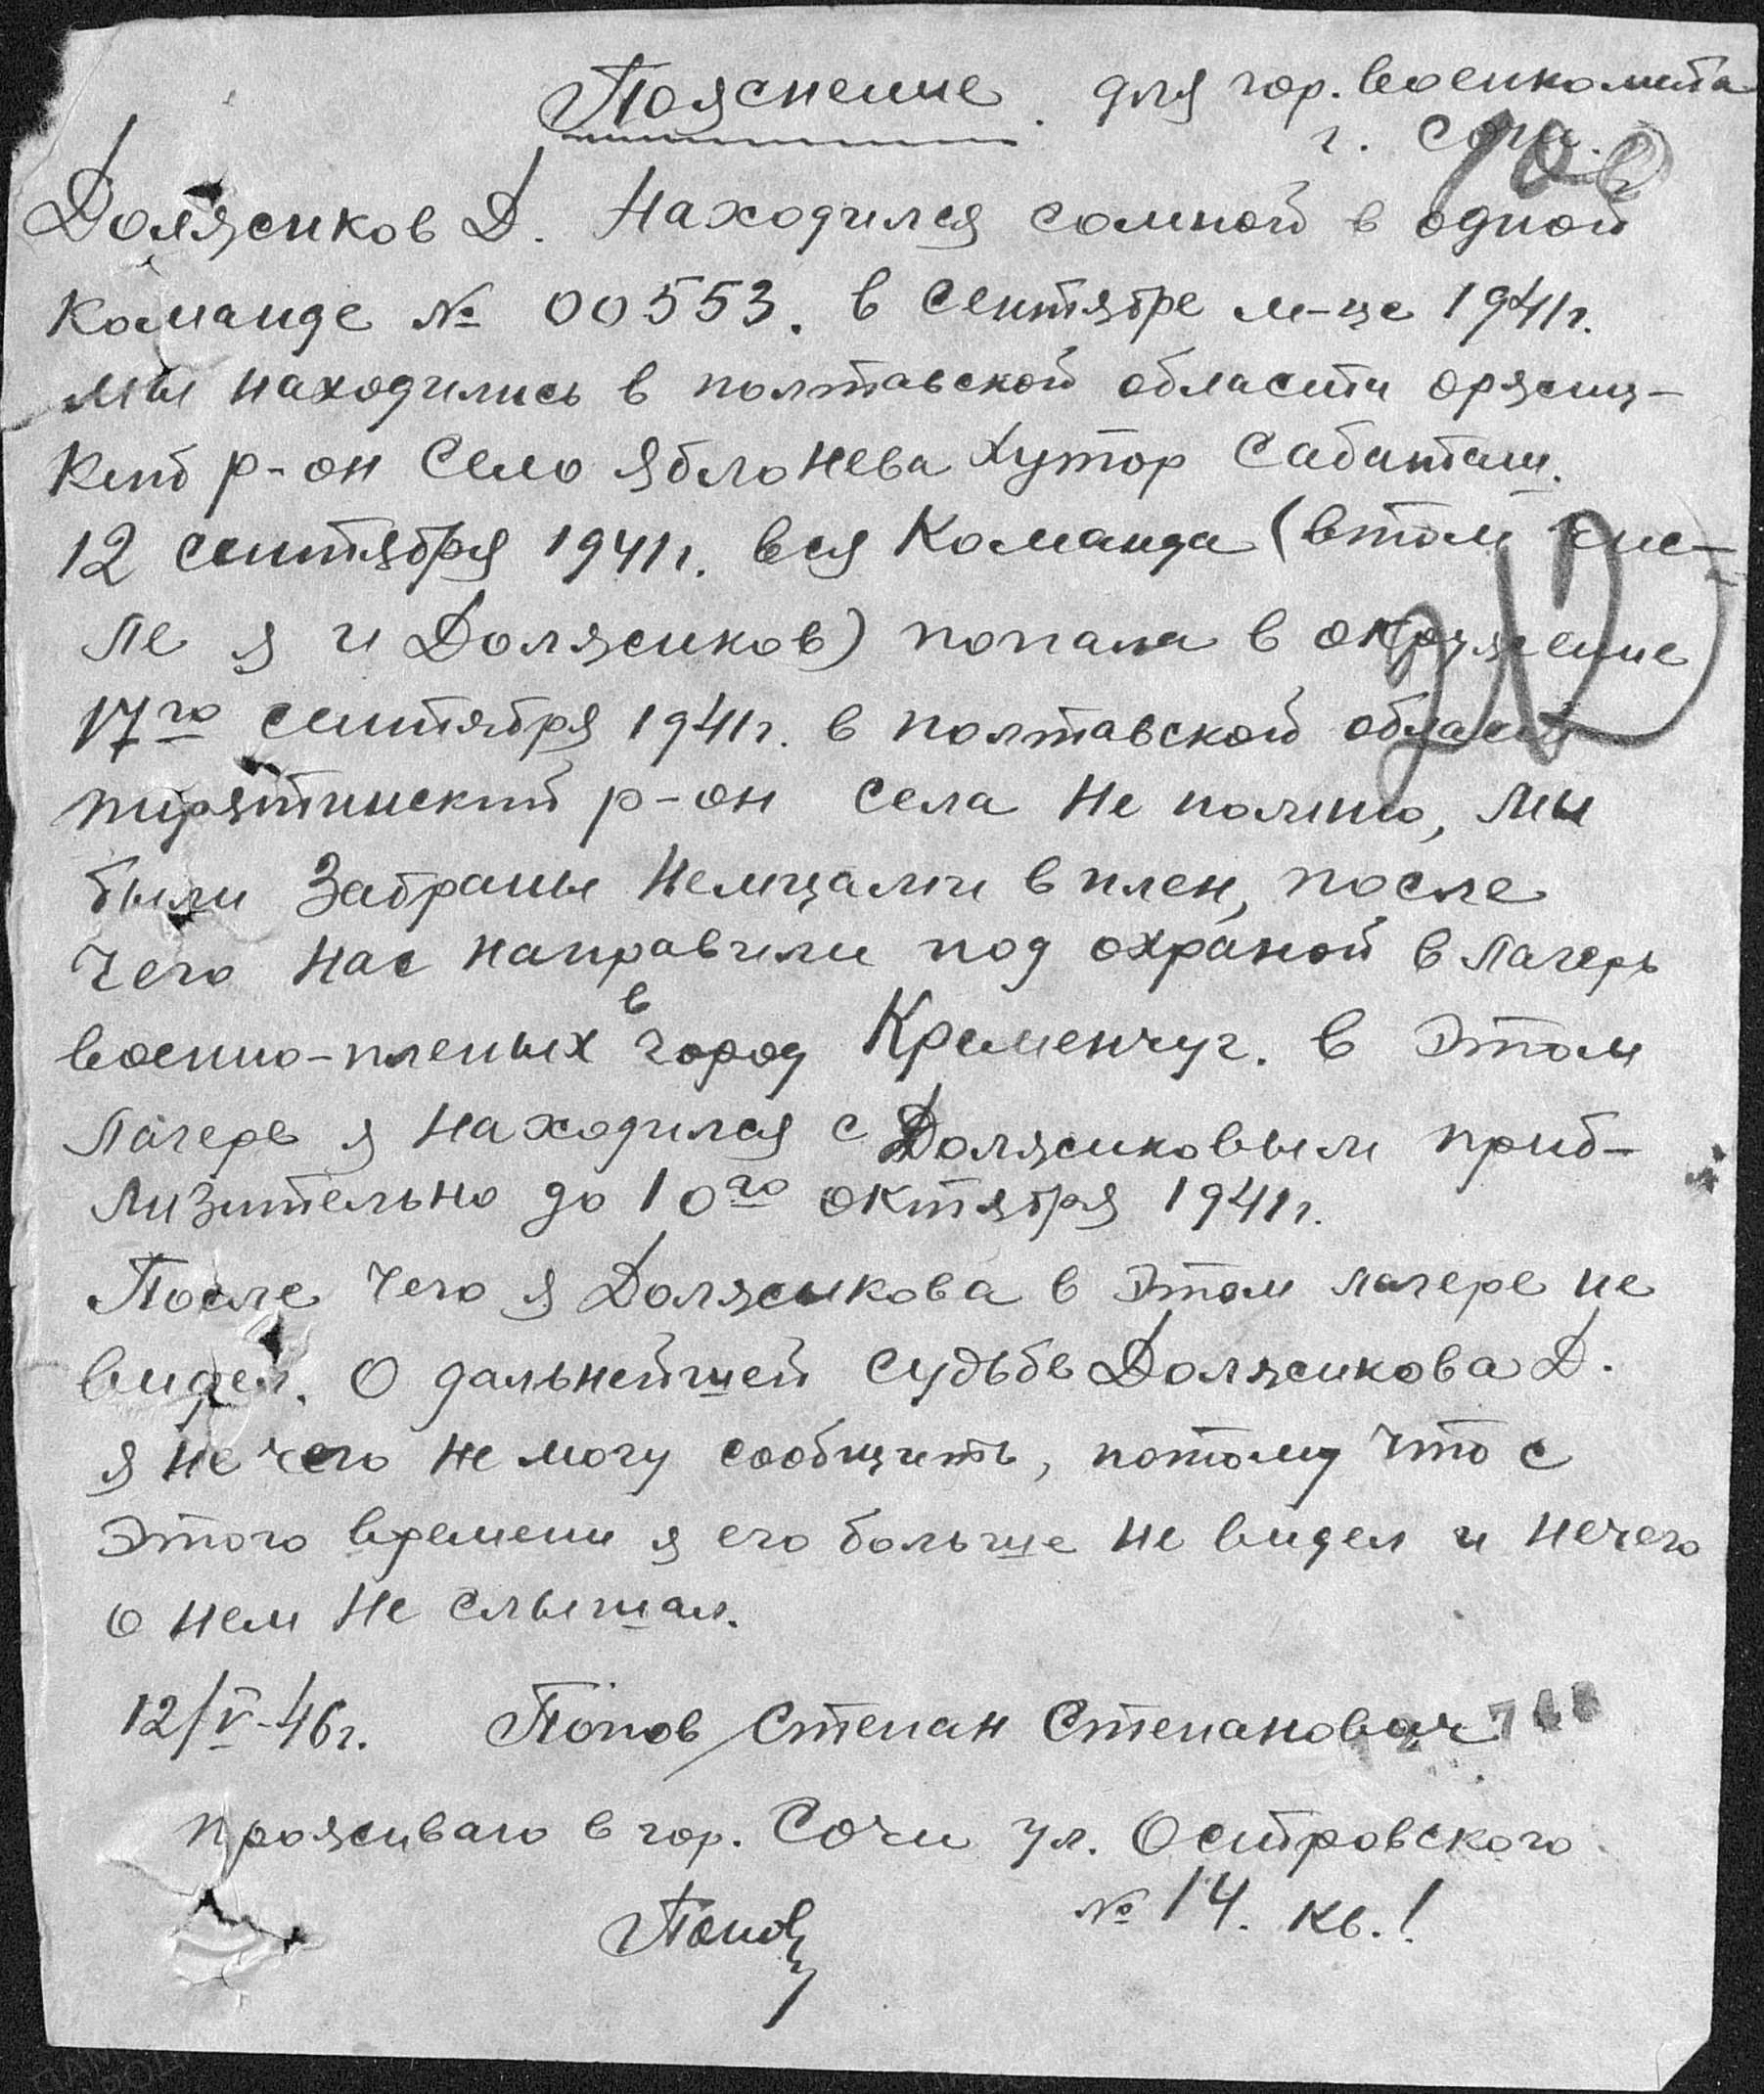 Пояснение для гор. Военкомата
г. Сочи.
Должиков Д. Находился сомной в одной
команде № 00553. в сентябре м-це 1941г.
мы находились в полтавской области оржиц-
кий р-он Село Яблонева Хутор Сабаташ.
12 сентября 1941г. вся Команда (втом чис-
ле я и Должиков) попала в окружение
17го сентября 1941г. в полтавской области
пирятинский р-он села не помню, мы
были Забраны Немцами в плен, после
чего нас направили под охраной в лагерь
военно-пленых в город Кременчуг. в этом
лагере я находился с Должиковым приб-
лизительно до 10го октября 1941г.
После чего я Должикова в этом лагере не
видел. О дальнейшей судьбе Должикова Д.
я не чего не могу сообщить, потому что с
этого времени я его больше не видел и нечего
о нем не слышал.
12/V-46г. Попов Степан Степанович
проживаю в гор. Сочи ул. Островского
№ 14. кв. 1
Попов